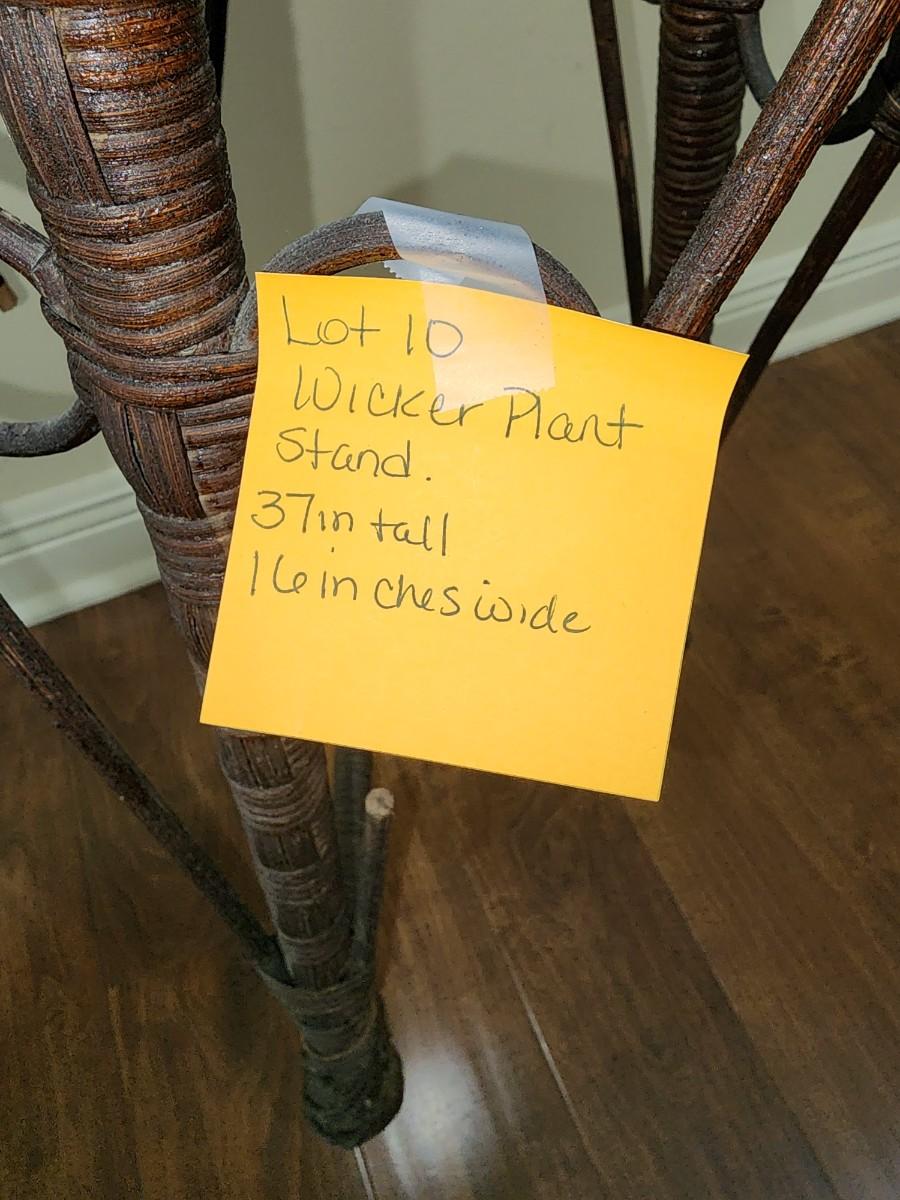 Lot 10
Wicker Plant
Stand.
37in tall
16inches wide